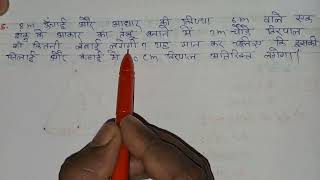 5. 8m ऊँचाई और आधार की त्रिज्या 6m वाले एक
शंकु के आकार का तंबू बनाने में 3m चौड़े तिरपाल
की कितनी लंबाई लगेगी? यह मान कर चलिए कि इसकी
सिलाई और कटाई में 20 cm तिरपाल अतिरिक्त लगेगा।